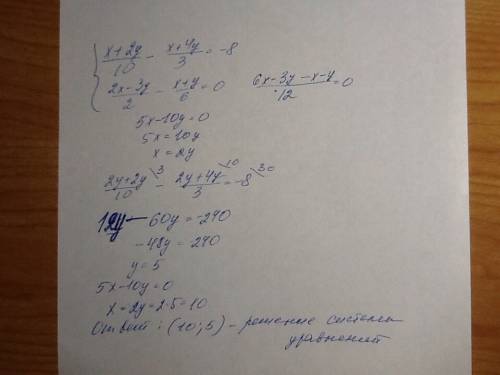 { (x+2y)/10 - (x+4y)/3 = -8
(2x-3y)/2 - (x+y)/6 = 0 (6x-3y-x-y)/12 = 0
5x-10y=0
5x=10y
x=2y
(2y+2y)/10 \3 - (2y+4y)/3 \10 = -8 \30
12y-60y=-240
-48y=240
y=5
5x-10y=0
x=2y=2·5=10
Ответ: (10;5) - решение системы
уравнений